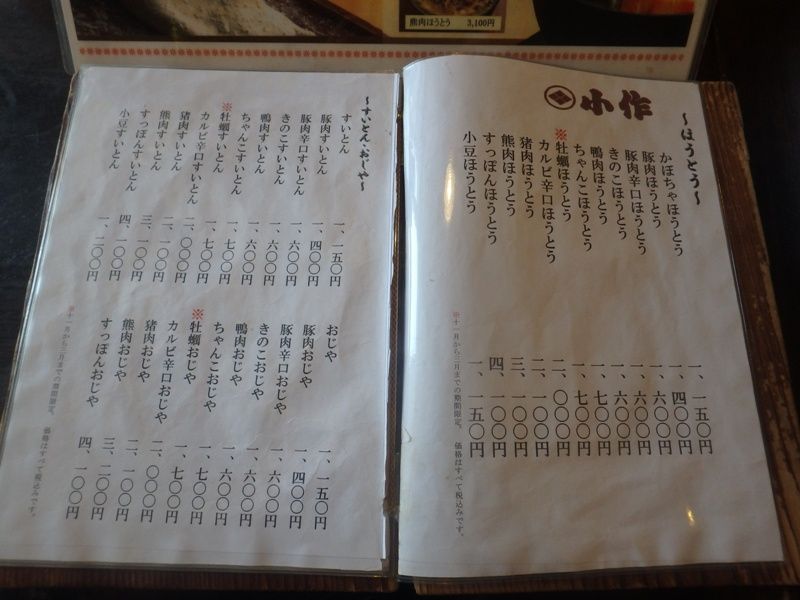 熊肉ほうとう 3,100円
小作
～ほうとう～
かぼちゃほうとう 一、一五〇円
豚肉ほうとう 一、四〇〇円
豚肉辛口ほうとう 一、六〇〇円
きのこほうとう 一、六〇〇円
鴨肉ほうとう 一、七〇〇円
ちゃんこほうとう 一、七〇〇円
※牡蠣ほうとう 二、〇〇〇円
カルビ辛口ほうとう 二、一〇〇円
猪肉ほうとう 三、一〇〇円
熊肉ほうとう 四、一〇〇円
すっぽんほうとう 一、一五〇円
小豆ほうとう
※十一月から三月までの期間限定。 価格はすべて税込みです。
～すいとん・おじや～
すいとん 一、一五〇円
豚肉すいとん 一、四〇〇円
豚肉辛口すいとん 一、六〇〇円
きのこすいとん 一、六〇〇円
鴨肉すいとん 一、六〇〇円
ちゃんこすいとん 一、七〇〇円
※牡蠣すいとん 一、七〇〇円
カルビ辛口すいとん 二、〇〇〇円
猪肉すいとん 二、一〇〇円
熊肉すいとん 三、一〇〇円
すっぽんすいとん 四、一〇〇円
小豆すいとん 一、二〇〇円
おじや 一、一五〇円
豚肉おじや 一、四〇〇円
豚肉辛口おじや 一、六〇〇円
きのこおじや 一、六〇〇円
鴨肉おじや 一、六〇〇円
ちゃんこおじや 一、七〇〇円
※牡蠣おじや 一、七〇〇円
カルビ辛口おじや 二、〇〇〇円
猪肉おじや 二、一〇〇円
熊肉おじや 三、二〇〇円
すっぽんおじや 四、一〇〇円
※十一月から三月までの期間限定。 価格はすべて税込みです。